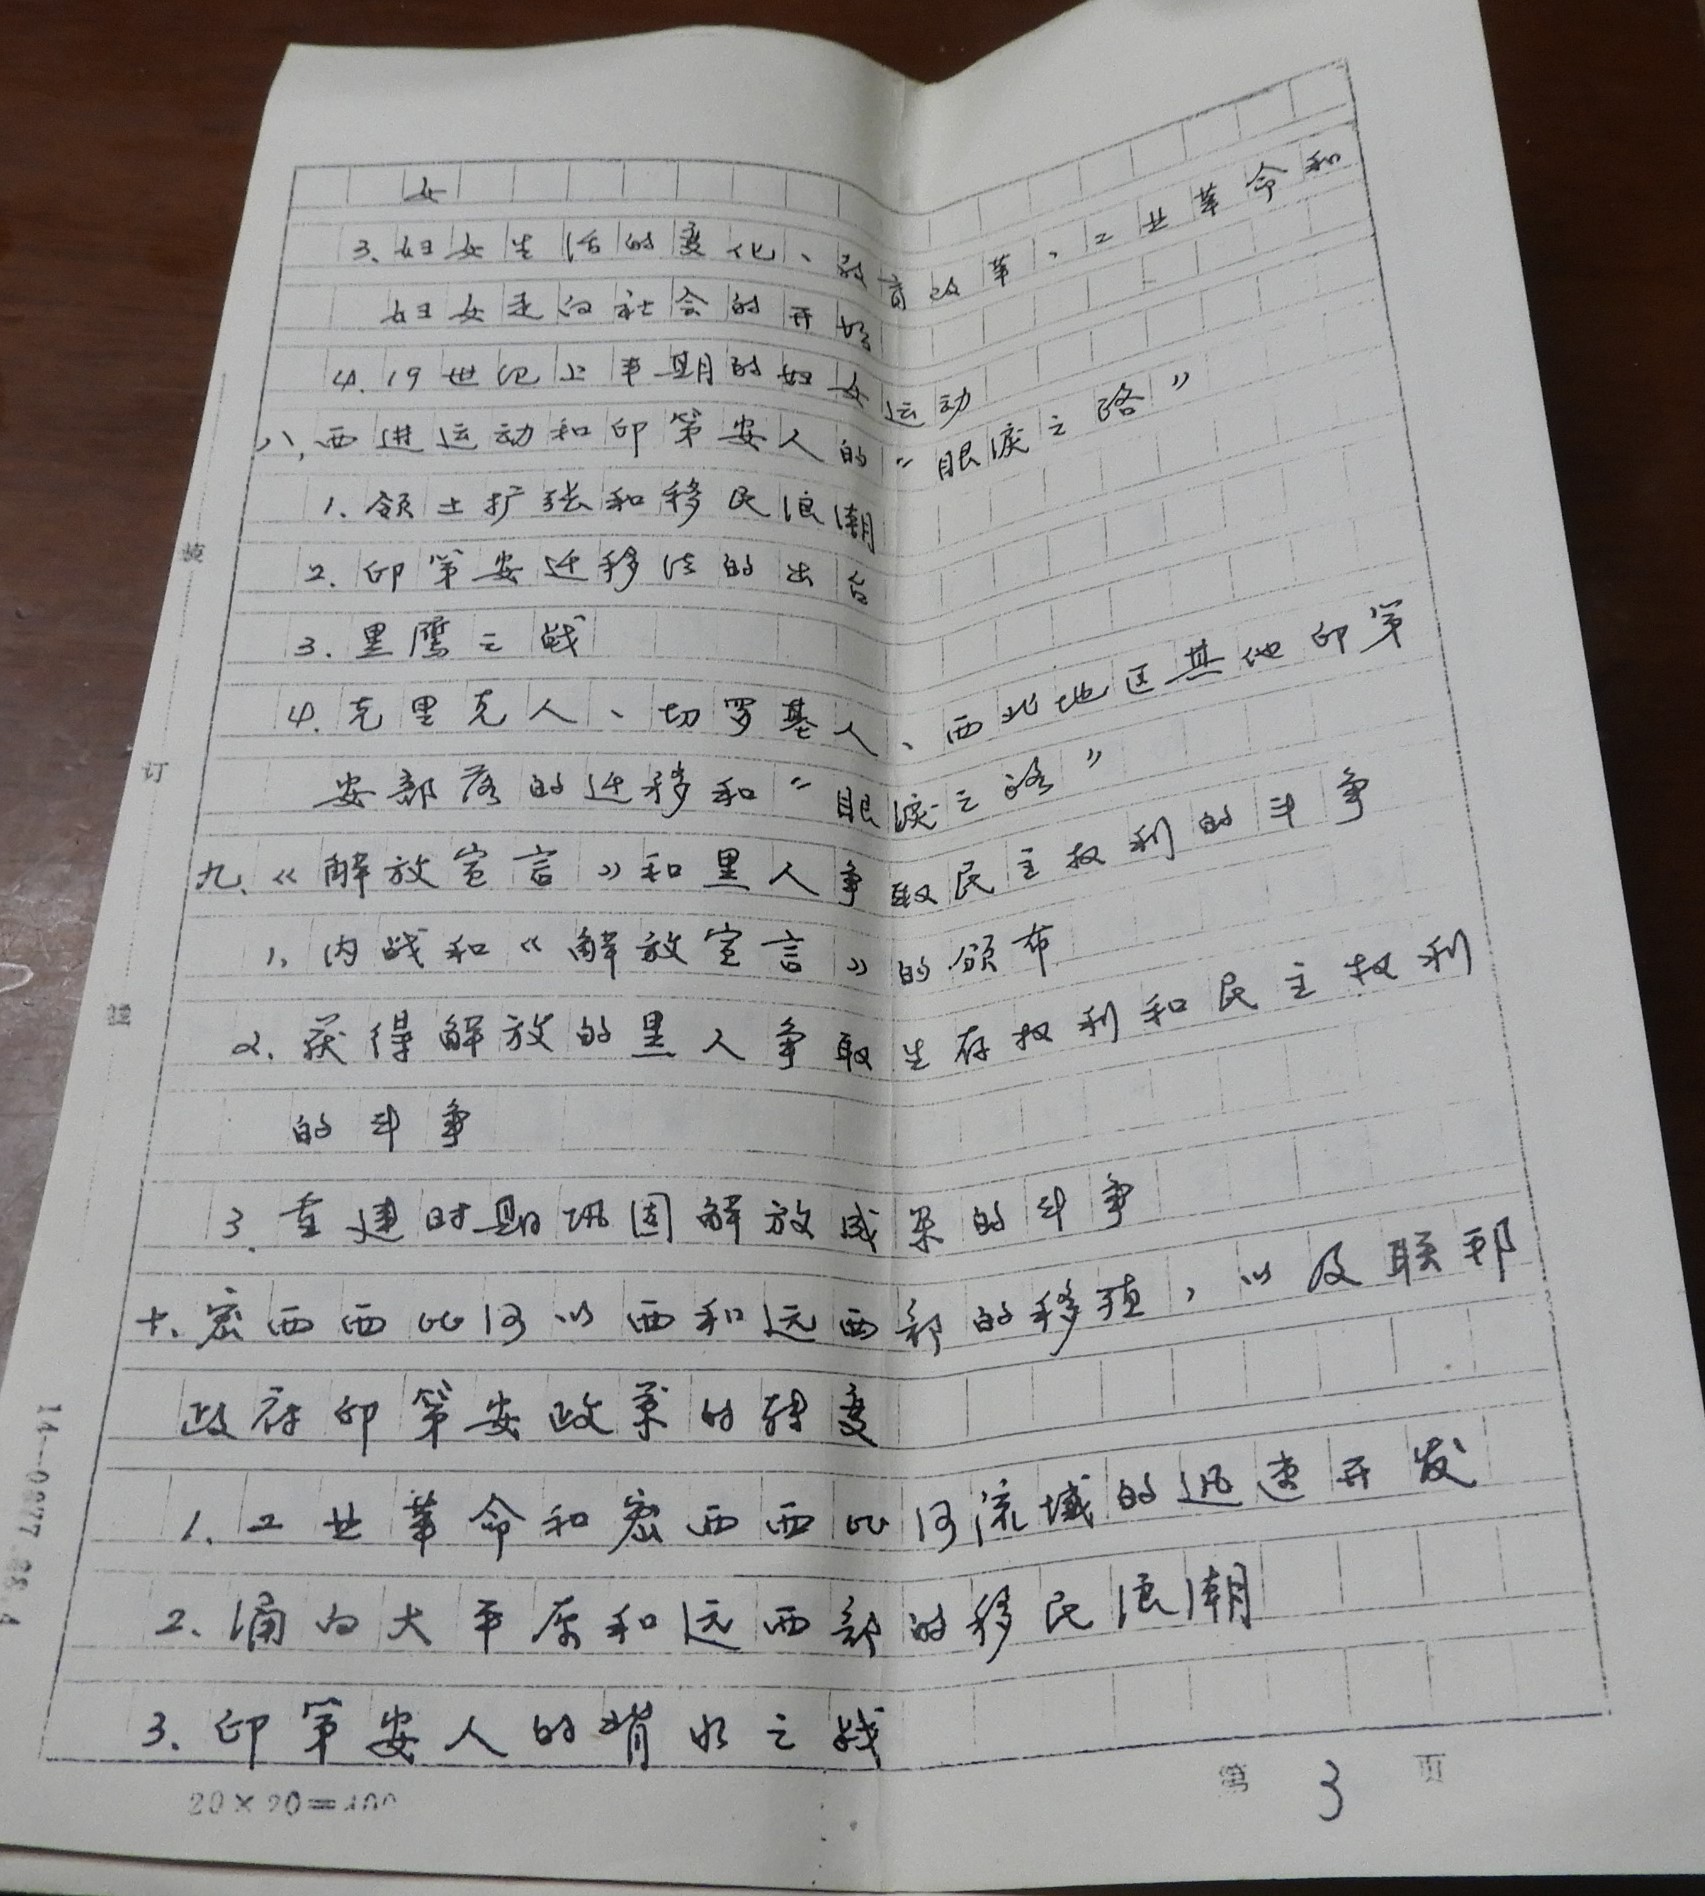 女
3、妇女生活的变化、教育改革、工业革命和
妇女走向社会的开始
4.19世纪上半期的妇女运动
八、西进运动和印第安人的“眼泪之路”
1.领土扩张和移民浪潮
2.印第安迁移法的出台
3.黑鹰之战
4.克里克人、切罗基人、西北地区其他印第
安部落的迁移和“眼泪之路”
九、《解放宣言》和黑人争取民主权利的斗争
1、内战和《解放宣言》的颁布
2.获得解放的黑人争取生存权利和民主权利
的斗争
3.重建时期巩固解放成果的斗争
十、密西西比河以西和远西部的移殖，以及联邦
政府印第安政策的转变
1.工业革命和密西西比河流域的迅速开发
2、涌向大平原和远西部的移民浪潮
3、印第安人的背水之战
装
订
线
14—0077.88.4
20×20=400
第 3 页